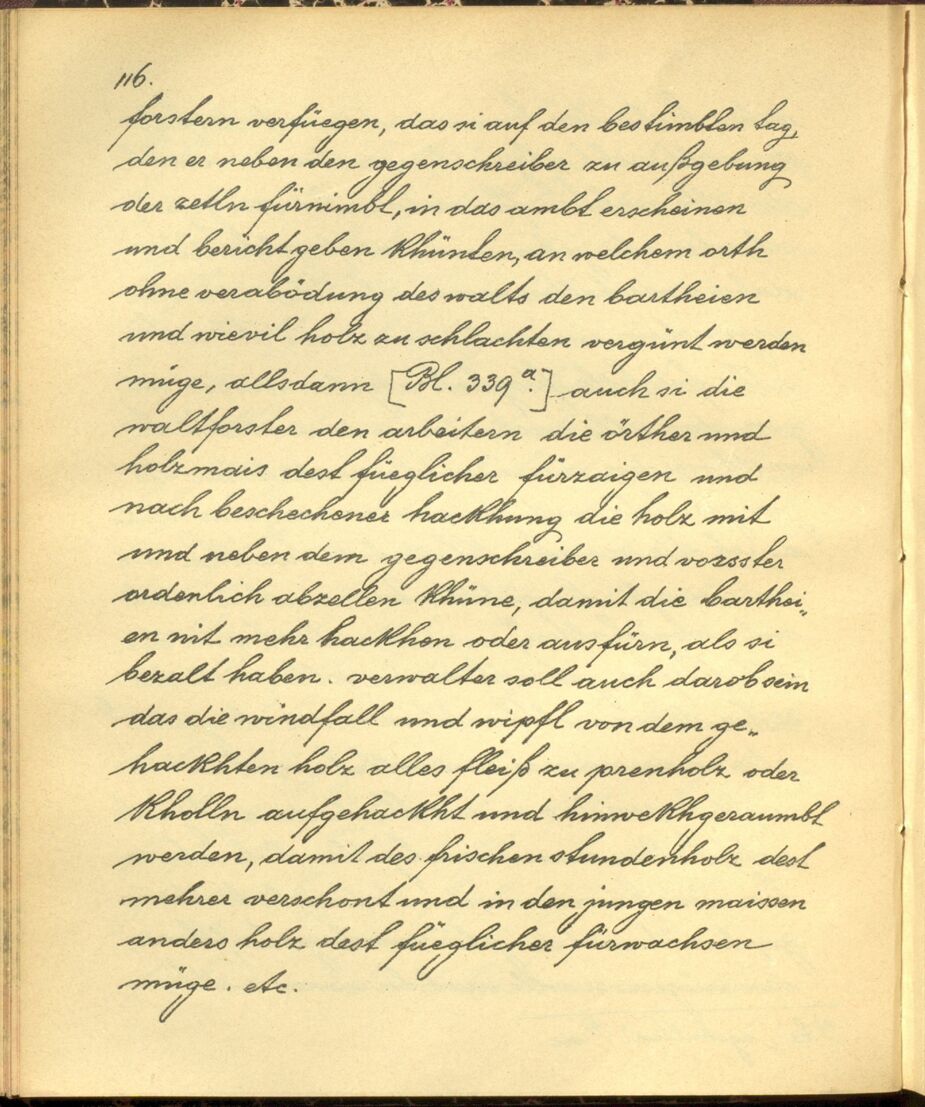 116.
forstern verfüegen, das si auf den bestimbten tag,
den er neben den gegenschreiber zu außgebung
der zetln fürnimbt, in das ambt erscheinen
und bericht geben khünten, an welchem orth
ohne verabödung des walts den bartheien
und wievil holz zu schlachten vergünt werden
müge, allsdann [Bl. 339 a.] auch si die
waltforster den arbeitern die örther und
holzmais dest füeglicher fürzaigen und
nach beschechener hackhung die holz mit
und neben dem gegenschreiber und vorsster
ordenlich abzellen khüne, damit die barthei„
en nit mehr hackhen oder ausfürn, als si
bezalt haben. verwalter soll auch darob sein
das die windfall und wipfl von dem ge„
hackhten holz alles fleiß zu prenholz oder
kholln aufgehackht und hinwekhgeraumbt
werden, damit des frischen stundenholz dest
mehrer verschont und in den jungen maissen
anders holz dest füeglicher fürwachsen
müge. etc.